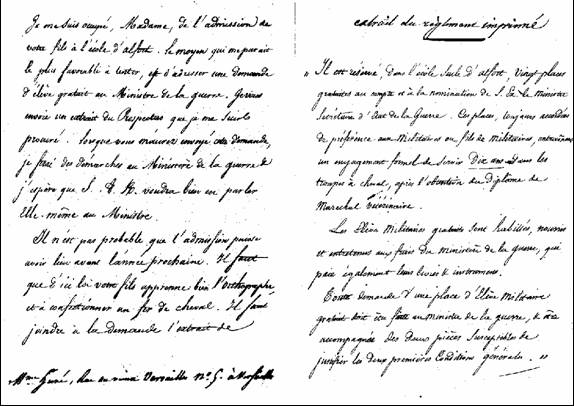 Je me suis occupé, Madame, de l'admission de
votre fils à l'école d'alfort. le moyen qui me parait
le plus favorable à tenter, est d'adresser une demande
d'élève gratuit au Ministre de la guerre. Je vous
envoie un extrait du Prospectus que je me suis
procuré. lorsque vous m'aurez envoyé cette demande,
je ferai des démarches au Ministère de la guerre &
j'espère que S. A. R. voudra bien en parler
Elle-même au Ministre.
Il n'est pas probable que l'admission puisse
avoir lieu avant l'année prochaine. Il faut
que d'ici là votre fils apprenne bien l'orthographe
et à confectionner un fer de cheval. Il faut
joindre à la demande l'extrait de
Mme Huré, Rue Versailles n° 5. à Versailles
extrait du règlement imprimé
" Il est réservé, dans l'école seule d'alfort, vingt places
gratuites au compte et à la nomination de S. Ex. le ministre
Secrétaire d'Etat de la Guerre. Ces places, toujours accordées
de préférence aux Militaires ou fils de militaires, entraînent
un engagement formel de servir Dix ans dans les
troupes à cheval, après l'obtention du diplome de
Marechal Vétérinaire.
Les Elèves Militaires gratuits sont habillés, nourris
et entretenus aux frais du ministère de la guerre, qui
paie également leurs livres & instrumens.
Toute demande d'une place d'Elève Militaire
gratuit doit être faite au ministre de la guerre, & être
accompagnée des deux pièces susceptibles de
justifier les deux premières conditions générales. "